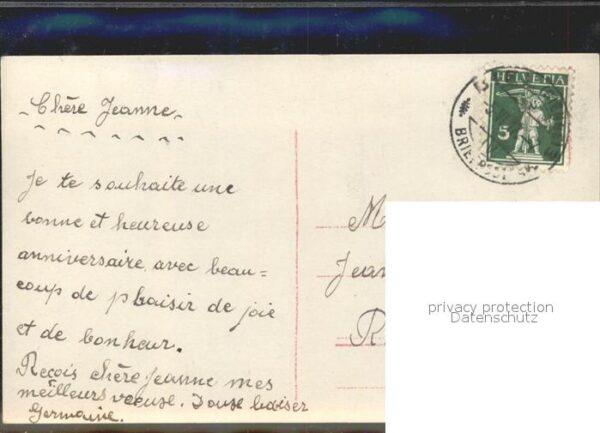 Chère Jeanne
Je te souhaite une
bonne et heureuse
anniversaire, avec beau=
coup de plaisir de joie
et de bonheur.
Reçois chère Jeanne mes
meilleurs voeuse. Douse baiser
Germaine.
HELVETIA
5
BRIEF
M
Jean
R
privacy protection
Datenschutz